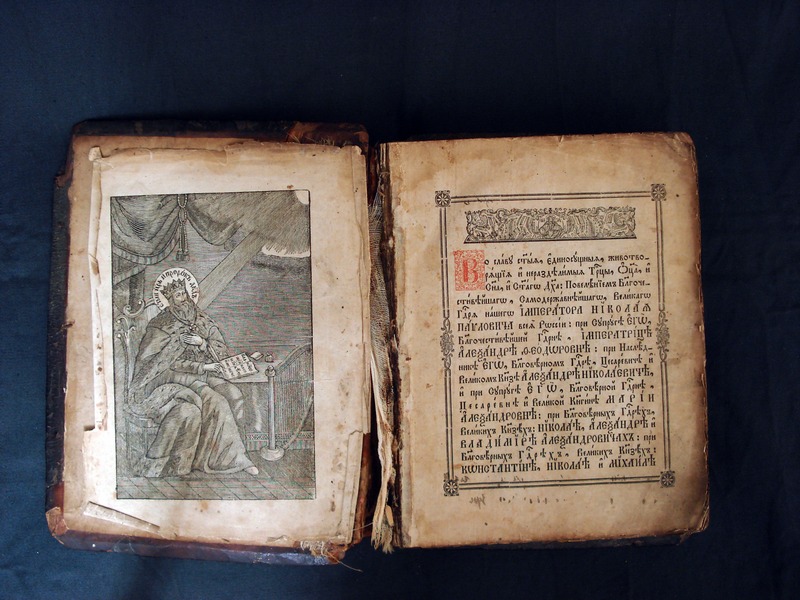 Во славу ст҃ыѧ, є҆диносꙋщныѧ, животво-
рѧщїѧ и҆ нераздѣлимыѧ Трⷪ҇цы, Ѻ҆ц҃а, и҆
Сн҃а, и҆ Ст҃агѡ Дх҃а: Повелѣнїемъ Бл҃гоче-
стивѣйшагѡ, Самодержавнѣйшагѡ, Великагѡ
Гдⷭ҇рѧ нашегѡ ІМПЕРАТОРА НІКОЛАА
ПАѴЛОВИЧА всеѧ Рѡссїи: при Сꙋпрꙋгѣ ЄГѠ̀,
Бл҃гочестивѣйшей Гдⷭ҇рнѣ, ІМПЕРАТРИЦѢ
АЛЕѮАНДРѢ ѲЕОДѠРОВНѢ: при Наслѣд-
никѣ ЄГѠ̀, Бл҃говѣрномъ Гдⷭ҇рѣ, Цесаревичѣ и҆
Великомъ Кнѧзѣ АЛЕѮАНДРѢ НІКОЛАЕВИЧѢ,
и҆ при Сꙋпрꙋгѣ ЄГѠ̀, Бл҃говѣрной Гдⷭ҇рнѣ,
Цесаревнѣ и҆ Великой Кнѧгинѣ МАРІИ
АЛЕѮАНДРОВНѢ: при Бл҃говѣрныхъ Гдⷭ҇рѣхъ,
Великихъ Кнѧзехъ: НІКОЛАѢ, АЛЕѮАНДРѢ и҆
ВЛАДИМІРѢ АЛЕѮАНДРОВИЧАХЪ: при
Бл҃говѣрныхъ Гдⷭ҇рѣхъ, Великихъ Кнѧзехъ:
КѠНСТАНТІНѢ, НІКОЛАѢ и҆ МІХАИЛѢ